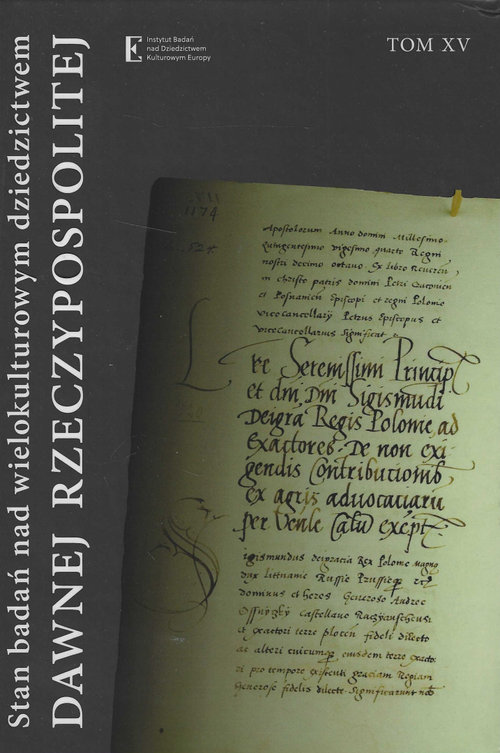 Stan badań nad wielokulturowym dziedzictwem
DAWNEJ RZECZYPOSPOLITEJ
Instytut Badań
nad Dziedzictwem
Kulturowym Europy
TOM XV
XVII
1174
Apostolorum Anno domini Millesimo
Quingentesimo vigesimo quarto Regni
nostri decimo octavo Ex libro Reveren
in christo patris domini Petri
et Posnanien Episcopi et regni Polonie
vicecancellarij Petrus Episcopus et
vicecancellarius significat
Lre Serenissimi Principis
et dni Dni Sigismudi
Deigra Regis Polonie ad
Exactores De non exi
gendis Contributionib
Ex agris advocaciaru
per
Sigismundus deigracia Rex Polonie magnus
dux Littuanie Russie Prussieq
dominus et heres Generoso Andree
castellano
et exactori terre plocen fideli dilecto
ac alteri cuicumq eiusdem terre exacto
ri pro tempore existenti graciam Regiam
Generose fidelis dilecte Significarunt